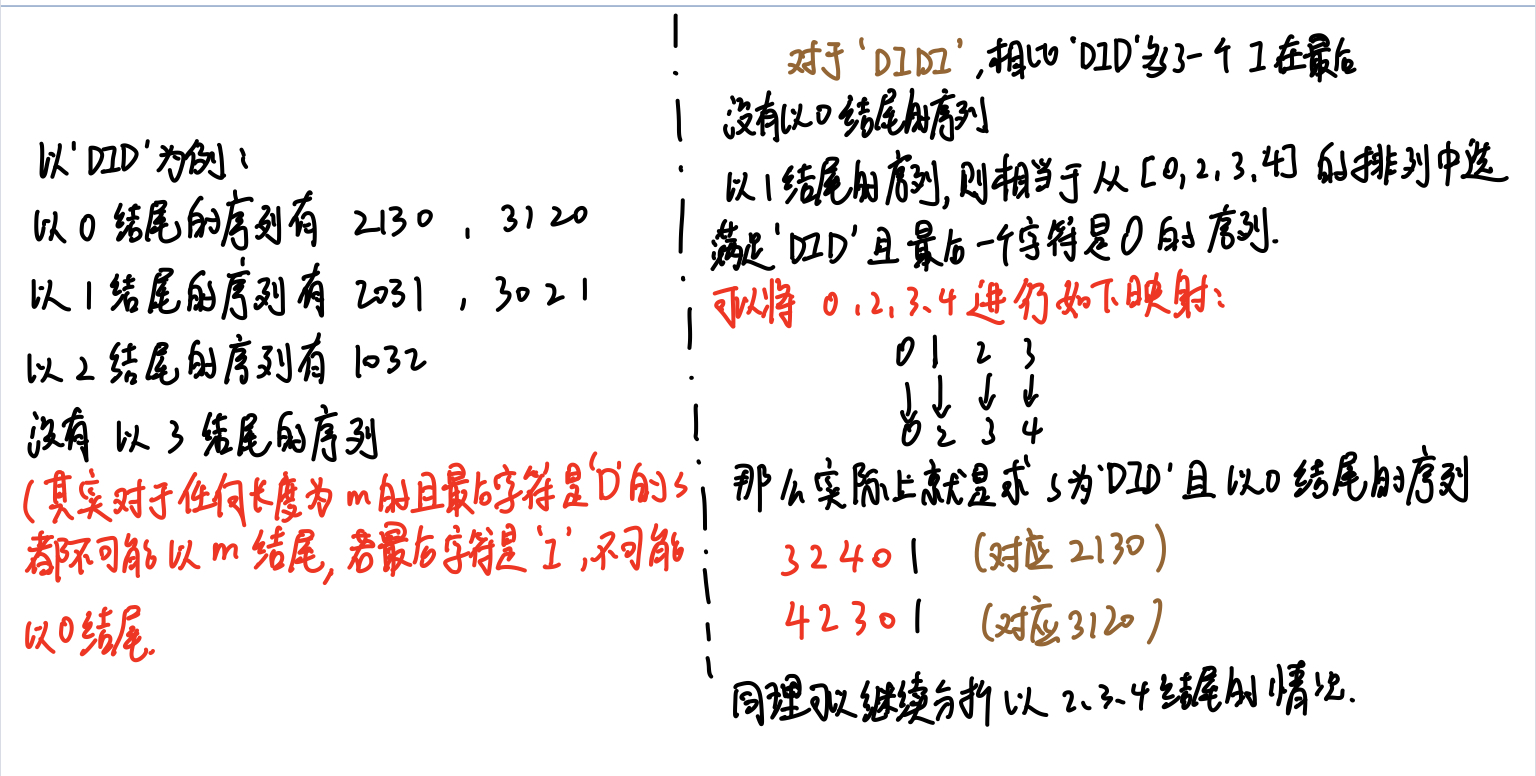 以'DID'为例:
以0结尾的序列有 2130 , 3120
以1结尾的序列有 2031 , 3021
以2结尾的序列有 1032
没有以3结尾的序列
(其实对于任何长度为m的且最后字符是'D'的s
都不可能以m结尾,若最后字符是'I',不可能
以0结尾.
对于'DIDI',相比'DID'多了一个I在最后
没有以0结尾的序列
以1结尾的序列,则相当于从[0,2,3,4]的排列中选
满足'DID'且最后一个字符是0的序列.
可以将 0,2,3,4进行如下映射:
0 1 2 3
↓ ↓ ↓ ↓
0 2 3 4
那么实际上就是求s为'DID'且以0结尾的序列
32401 (对应2130)
42301 (对应3120)
同理可以继续分析以2、3、4结尾的情况.